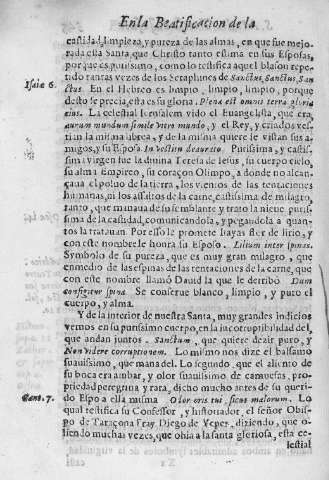 En la Beatificacion de la
castidad, limpieza, y pureza de las almas, en que fue mejo-
rada ella Santa, que Christo tanto estima en sus Esposas,
porque es purissimo, como lo testifica aquel blason repe-
tido tantas vezes de los Seraphines de Sanctus, Sanctus, San
Isaiæ 6.
ctus. En el Hebreo es limpio, limpio, limpio, porque
desto se precia, esta es su gloria. Plena est omnis terra gloria
eius. La celestial Ierusalem vido el Euangelista, que era,
aurum mundum simile vitro mundo, y el Rey, y criados vel-
tian la misma librea, y de la misma quiere se vistan sus a-
migos, y su Esposa In vestitu deaurato. Purissima, y castis-
sima virgen fue la diuina Teresa de Iesus, su cuerpo cielo,
su alma Empireo, su coraçon Olimpo, a donde no alcan-
çaua el poluo de la tierra, los vientos de las tentaciones
humanas, ni los assaltos de la carne, castissima de milagro,
tanto, que manaua de su semblante y trato la nieue puris-
sima de la castidad, comunicandola, y pegandola a quan-
tos la tratauan. Por esso le promete Isayas ser de lirio, y
con este nombre le honra su Esposo. Lilium inter spinas.
Symbolo de su pureza, que es muy gran milagro, que
en medio de las espinas de las tentaciones de la carne, que
con este nombre llamó Dauid la que le derribò Dum
configitur spina. Se conserue blanco, limpio, y puro el
cuerpo, y alma.
Y de la interior de nuestra Santa, muy grandes indicios
vemos en su purissimo cuerpo, en la incorruptibilidad del,
que andan juntos. Sanctum, que quiere dezir puro, y
Non videre corruptionem. Lo mismo nos dize el balsamo
suauissimo, que mana del. Lo segundo, que el aliento de
su boca era ambar, y olor suauissimo de camuesas, pro-
piedad peregrina y rara, dicho mucho antes de su queri-
Cant. 7.
do Esposo a ella misma Olor oris tui, sicut malorum. Lo
qual testifica su Confessor, y historiador, el señor Obis-
po de Taraçona Fray Diego de Yepes, diziendo, que o-
liendo muchas vezes, que ohia a la santa gloriosa, esta ce-
lestial